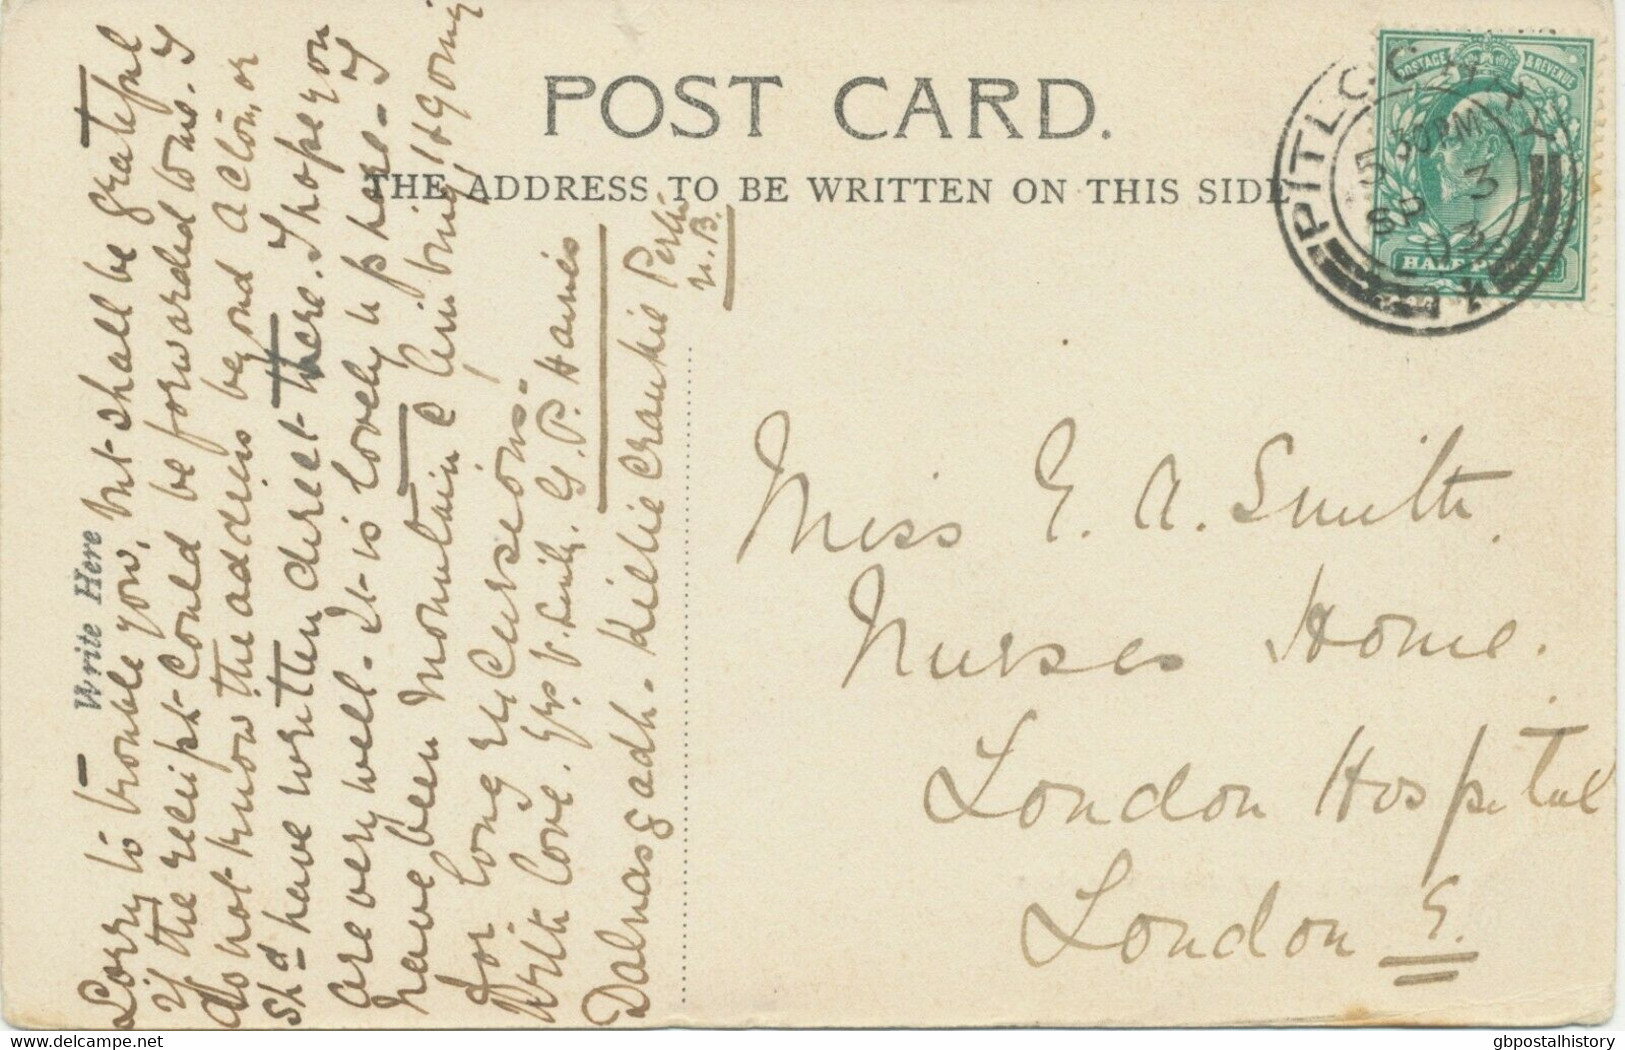 POST CARD.
THE ADDRESS TO BE WRITTEN ON THIS SIDE
Write Here
Sorry to trouble you, but shall be grateful
if the receipt could be forwarded to me. I
do not know the address beyond Acton, or
shd have written direct there. I hope you
are very well. It is lovely up here. I
have been mountain climbing & going
for long excursions.
With love. Yrs V. Sinly. G. P. Haines
Dalnasgadh. Killiecrankie Perth
N.B.
Miss E. A. Smith.
Nurses Home.
London Hospital
London E.
POSTAGE & REVENUE
HALF PENNY
PITLOCHRY
5 30 PM
SP 3
www.delcampe.net
gbpostalhistory